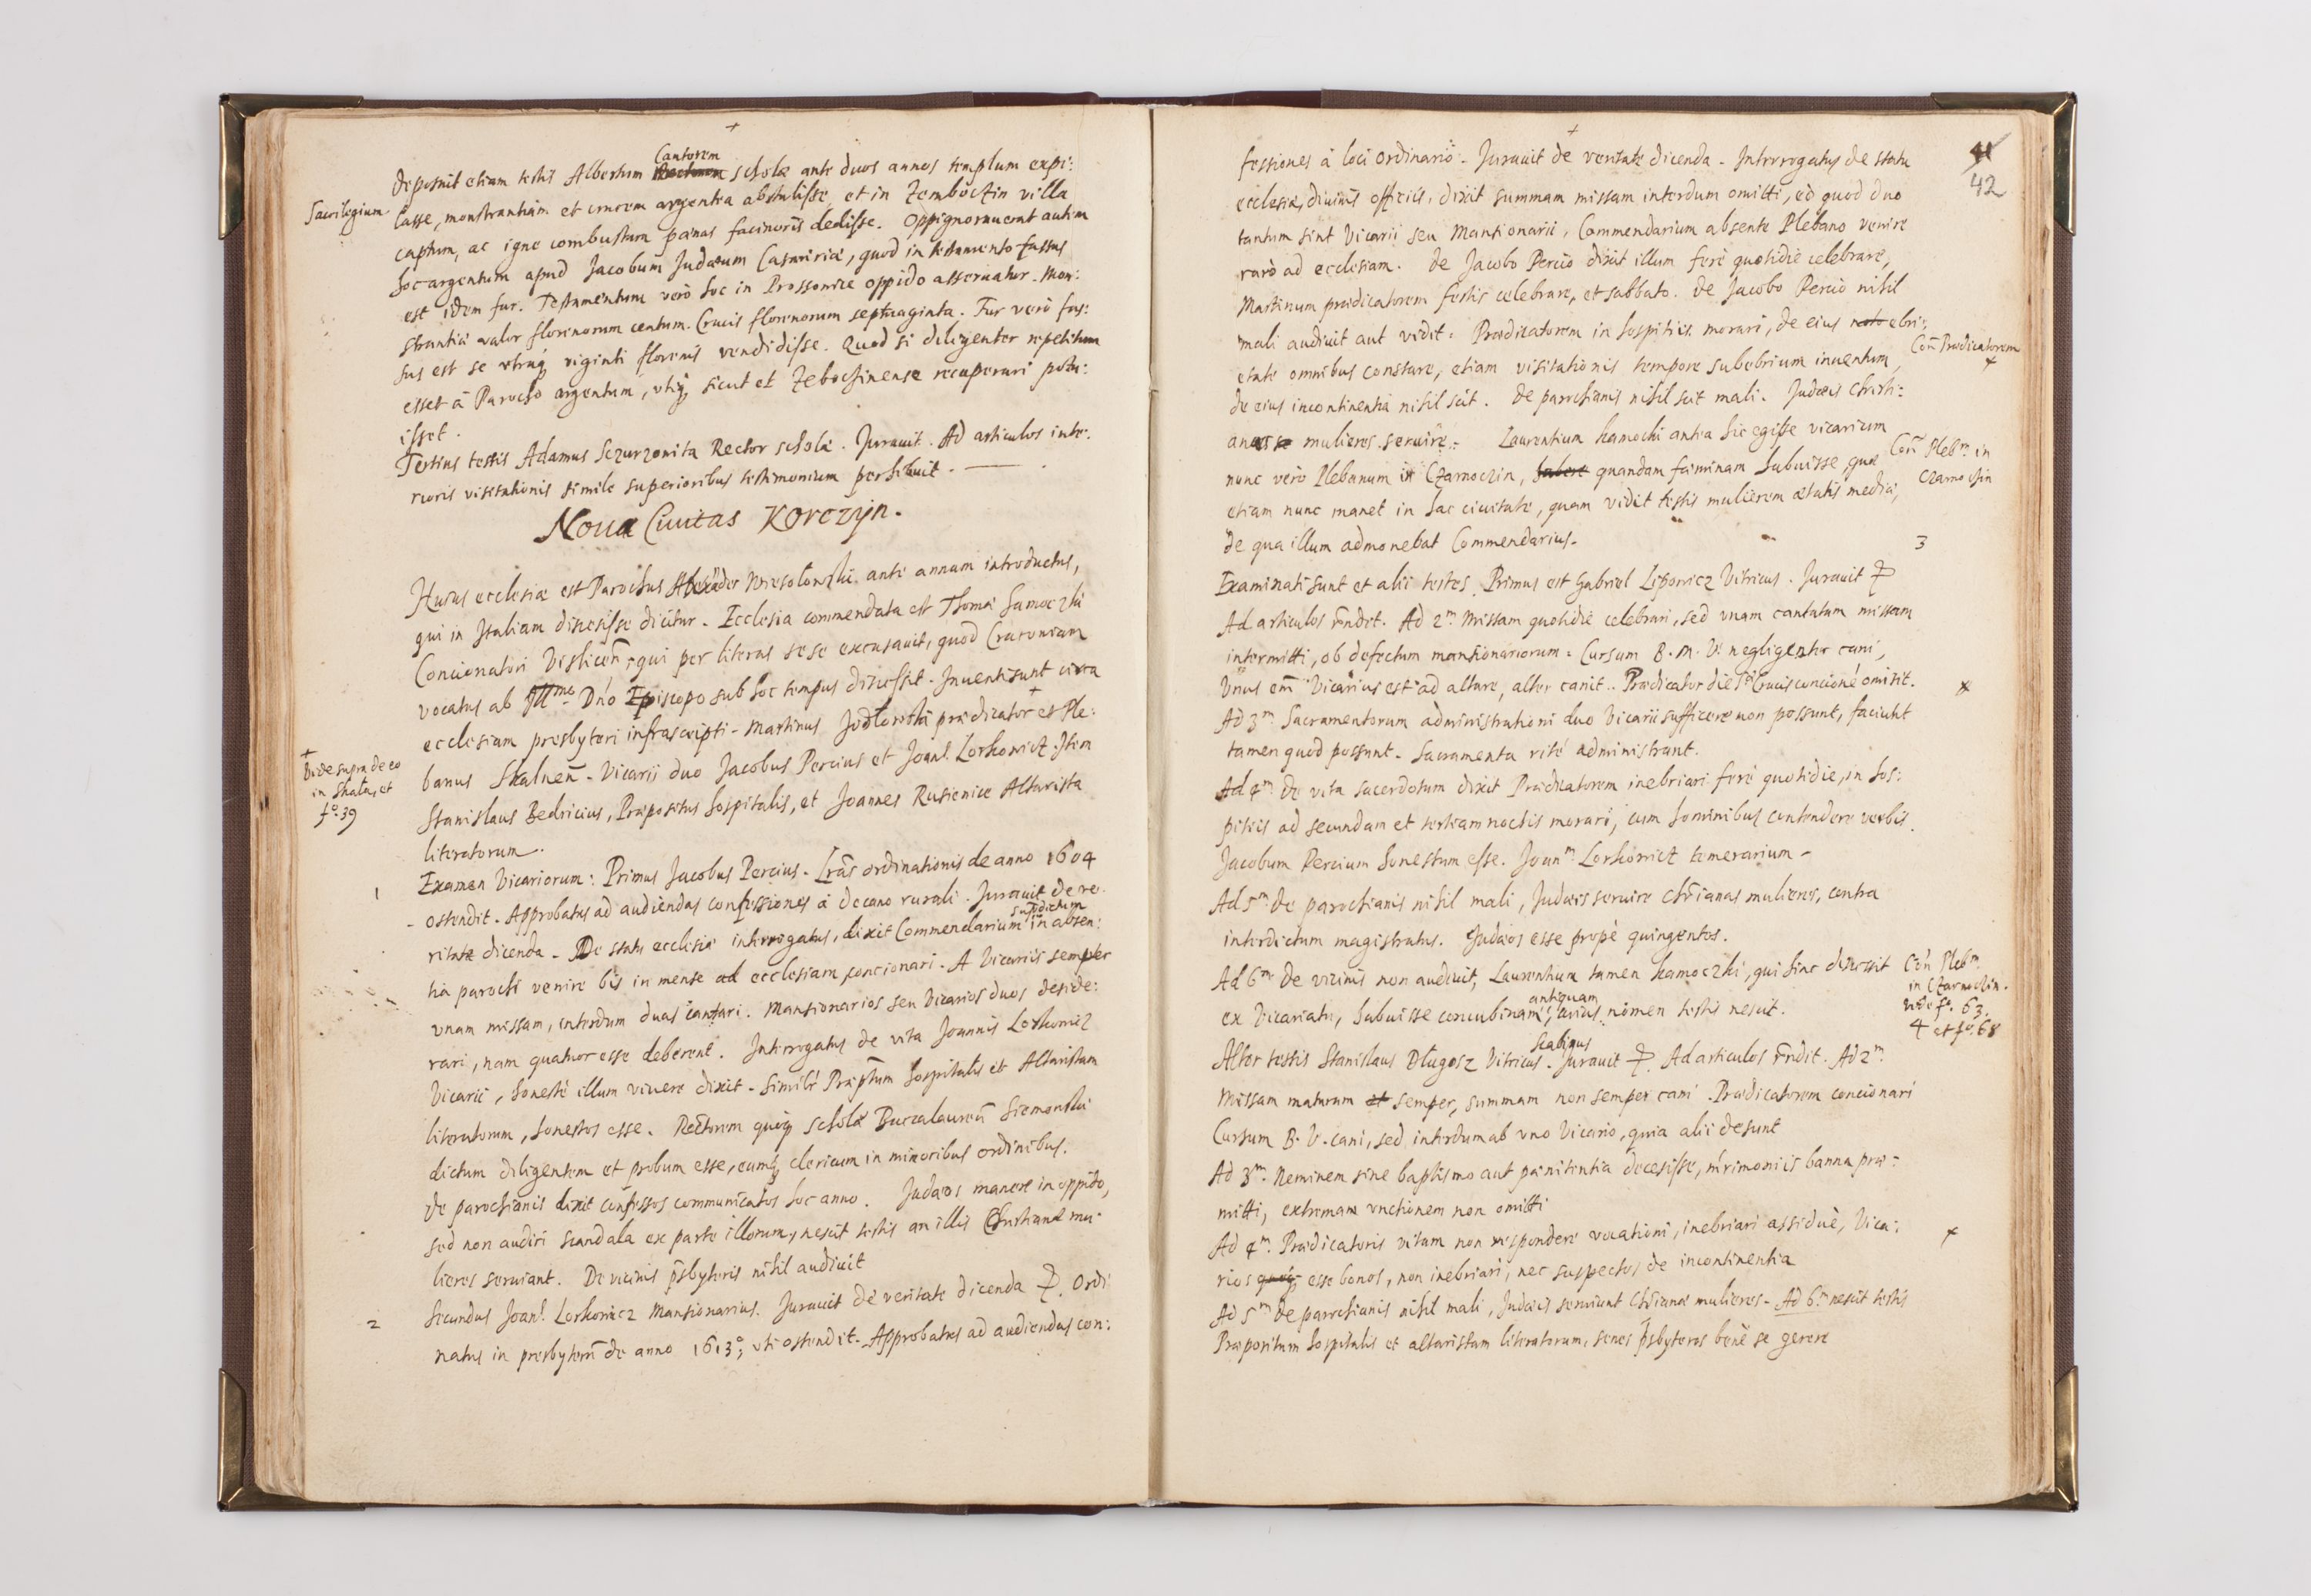 Deposuit etiam testis Albertum Cantorem scholæ ante duos annos templum expi:
Sacrilegium
lasse, monstrantiam et crucem argentea abstulisse, et in Zemboctin villa
captum, ac igne combustum pœnas facinoris dedisse. Oppignorauerat autem
hoc argentum apud Jacobum Judæum Casimiriæ, quod in testamento fassus
est idem fur. Testamentum verò hoc in Prossouice oppido asseruatur. Mon:
strantiæ valor florenorum centum. Crucis florenorum septuaginta. Fur verò fas:
sus est se vtrūq viginti florenis vendidisse. Quod si diligenter repetitum
esset à Parocho argentum, vtiq sicut et Zebocinense recuperari potu:
isset.
Tertius testis Adamus Sczurzonita Rector scholæ. Jurauit. Ad articulos inte:
rioris visitationis simile superioribus testimonium perhibuit.
Noua Ciuitas Korczyn.
Huius ecclesiæ est Parochus Alexāder Wiesołowski ante annum introductus,
qui in Italiam discessisse dicitur. Ecclesia commendata est Thomæ hamoczki
Concionatori Vislicen̄, qui per literas sese excusauit, quod Cracouiam
vocatus ab Illmo Dn̄o Episcopo sub hoc tempus discessit. Inuenti sunt circa
ecclesiam presbyteri infrascripti. Martinus Jodłowski prædicator et Ple:
+
Vide supra de eo
in Skala, et
fo. 39
banus Skalnen̄. Vicarii duo Jacobus Percius et Joan̄. Lorkowicz. Item
Stanislaus Bedricius, Præpositus hospitalis, et Joannes Rusienice Altarista
literatorum.
1
Examen Vicariorum: Primus Jacobus Percius. Lr̄as ordinationis de anno 1604
ostendit. Approbatus ad audiendas confessiones à decano rurali. Jurauit de ve:
ritate dicenda. De statu ecclesiæ interrogatus, dixit Commendarium supradictum in absen:
tia parochi venire bis in mense ad ecclesiam concionari. A Vicariis semper
vnam missam, interdum duas cantari. Mansionarios seu Vicarios duos deside:
rari, nam quatuor esse deberent. Interrogatus de vita Joannis Lorkowicz
Vicarii, honestè illum viuere dixit. Similr̄ Præptum hospitalis et Altaristam
literatorum, honestos esse. Rectorem quoq scholæ Baccalaureū Siemonski
dictum diligentem et probum esse, eumq clericum in minoribus ordinibus.
De parochianis dixit confessos communicatos hoc anno. Judæos manere in oppido,
sed non audiri scandala ex parte illorum, nescit testis an illis Christianæ mu:
lieres seruiant. De vicinis p̄sbyteris nihil audiuit
2
Secundus Joan̄. Lorkowicz Mansionarius. Jurauit de veritate dicenda. Ordi
natus in presbyterū de anno 1613o, vti ostendit. Approbatus ad audiendas con:
41
42
fessiones à loci ordinario. Jurauit de veritate dicenda. Interrogatus de statu
ecclesiæ, diuinis officiis, dixit summam missam interdum omitti, eò quod duo
tantum sint Vicarii seu Mansionarii, Commendarium absente Plebano venire
rarò ad ecclesiam. De Jacobo Percio dixit illum ferè quotidie celebrare,
Martinum prædicatorem festis celebrare, et sabbato. De Jacobo Percio nihil
mali audiuit aut vidit. Prædicatorem in hospitiis morari, de eius ebri:
Con̄ Prædicatorem
etate omnibus constare, etiam visitationis tempore subebrium inuentum,
de eius incontinentia nihil scit. De parochianis nihil scit mali. Judæis Christi:
anas mulieres seruire. Laurentium hamocki antea hic egisse vicarium
Con̄ Plebm in
Czarnocin
nunc verò Plebanum in Czarnoczin, quandam fœminam habuisse, quæ
etiam nunc manet in hac ciuitate, quam vidit testis mulierem ætatis mediæ,
de qua illum admonebat Commendarius.
3
Examinati sunt et alii testes. Primus est Gabriel Lipowicz Vitricus. Jurauit
Ad articulos r̄ndet. Ad 2m Missam quotidie celebrari, sed vnam cantatam missam
intermitti, ob defectum mansionariorum. Cursum B. M. V. negligenter cani,
Vnus em̄ Vicarius est ad altare, alter canit. Prædicator die S. Crucis concionē omisit.
Ad 3m Sacramentorum administrationi duo Vicarii sufficere non possunt, faciunt
tamen quod possunt. Sacramenta ritè administrant.
Ad 4m De vita sacerdotum dixit Prædicatorem inebriari ferè quotidie, in hos:
pitiis ad secundam et tertiam noctis morari, cum hominibus contendere verbis.
Jacobum Percium honestum esse. Joanm Lorkowicz temerarium.
Ad 5m de parochianis nihil mali, Judæis seruire chr̄ianas mulieres, contra
interdictum magistratus. Judæos esse propè quingentos.
Ad 6m De vicinis non audiuit, Laurentium tamen hamoczki, qui hinc discessit
Con̄ Plebm
in Czarnoczin.
vide fo. 63.
4 et fo. 68
ex Vicariatu, habuisse concubinam antiquam, cuius nomen testis nescit.
Alter testis Stanislaus Długosz Vitricus Scabinus. Jurauit. Ad articulos r̄ndit. Ad 2m
Missam maturam semper, summam non semper cani. Prædicatorem concionari
Cursum B. V. cani, sed interdum ab vno Vicario, quia alii desunt
Ad 3m Neminem sine baptismo aut pœnitentia decessisse, mr̄imoniis banna præ:
mitti, extremam vnctionem non omitti
Ad 4m Prædicatoris vitam non respondere vocationi, inebriari assiduè, Vica:
rios esse bonos, non inebriari, nec suspectos de incontinentia
Ad 5m De parochianis nihil mali, Judæis seruiunt Chr̄ianæ mulieres. Ad 6m nescit testis
Præpositum hospitalis et altaristam literatorum, senes p̄sbyteros benè se gerere